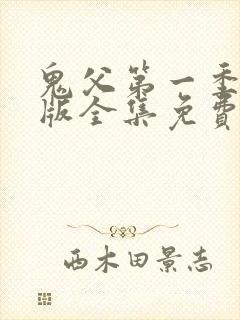 鬼父第一季
版全集免費
西木田景志